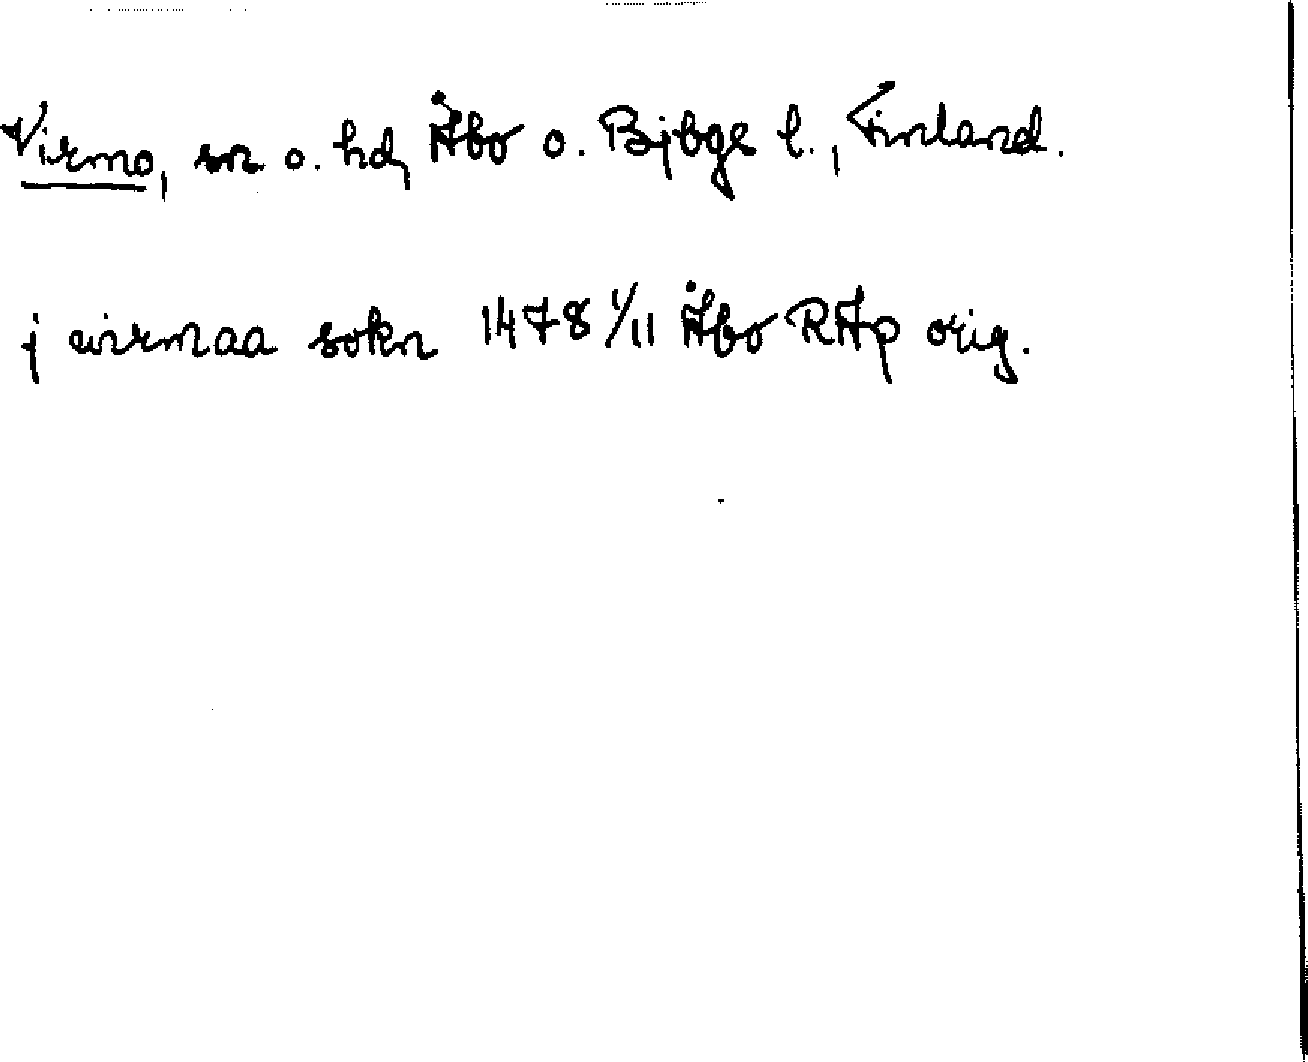 Virmo, sn o. hd, Åbo o. Bjbgs l., Finland.
j wirmaa sokn 1478 1/11 Åbo RAp orig.